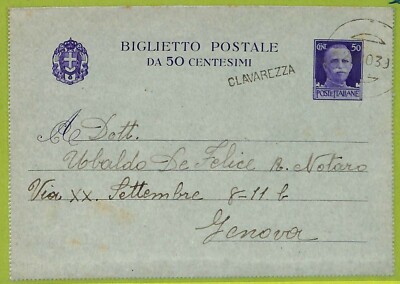 BIGLIETTO POSTALE
DA 50 CENTESIMI
CLAVAREZZA
CENT. 50
POSTE ITALIANE
A Dott.
Ubaldo De Felice R. Notaro
Via XX. Settembre 8-11 b
Genova